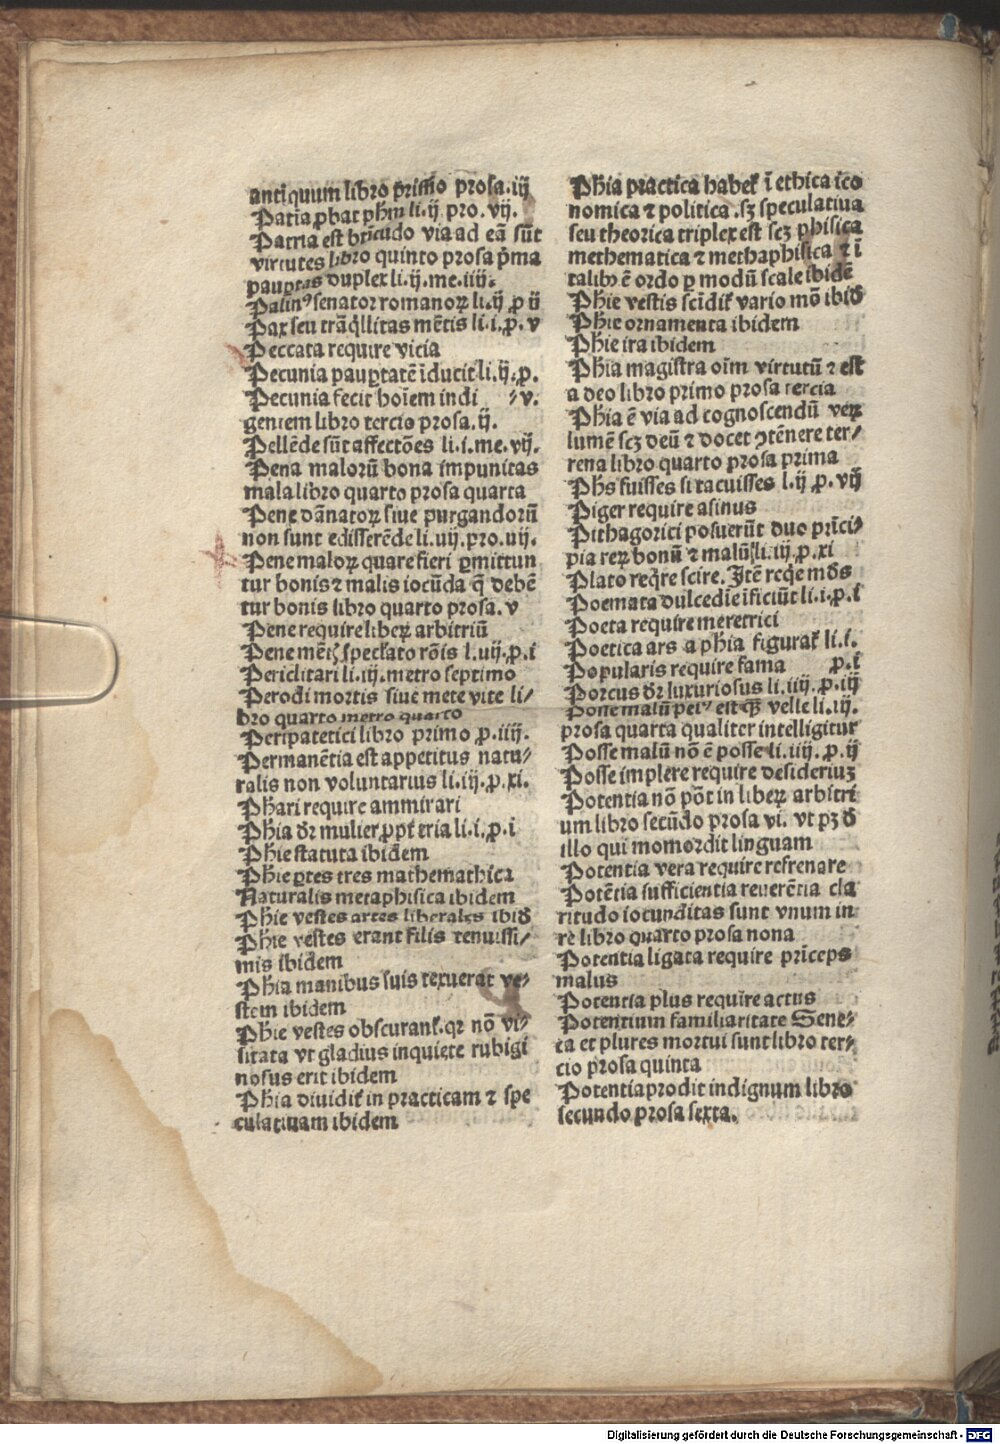 antiquum libro primo prosa.iij
Patria ꝓbat pħm li.ij pro.vij.
Patria est btitudo via ad eā sūt
virtutes libro quinto prosa p̄ma
pauꝑtas duplex li.ij.me.iiij.
Palinꝰ senator romanoꝝ li.ij ꝓ ij
Pax seu trāq̄llitas mētis li.i.ꝓ.v
Peccata require vicia
Pecunia pauꝑtatē īducit li.ij.ꝓ.
Pecunia fecit hoīem indi ⸗v.
gentem libro tercio prosa.ij.
Pellēde sūt affectōes li.i.me.vij.
Pena malorū bona impunitas
mala libro quarto prosa quarta
Pene dānatoꝝ siue purgandorū
non sunt edisserēde li.iiij.pro.iiij.
Pene maloꝝ quare fieri ꝑmittun
tur bonis ⁊ malis iocūda q̄ debē
tur bonis libro quarto prosa.v
Pene require libeꝝ arbitriū
Pene mētis spectato rōis l.iiij.ꝓ.i
Periclitari li.iij.metro septimo
Perodi mortis siue mete vite li⸗
bro quarto metro quarto
Peripatetici libro primo ꝓ.iiij.
Permanētia est appetitus natu⸗
ralis non voluntarius li.iij.ꝓ.xi.
Phari require ammirari
Pħia dr̄ mulier ꝓpt̄ tria li.i.ꝓ.i
Pħie statuta ibidem
Pħie ꝑtes tres mathemathica
Naturalis metaphisica ibidem
Pħie vestes artes liberales ibid̄
Pħie vestes erant filis tenuissi⸗
mis ibidem
Pħia manibus suis texuerat ve⸗
stem ibidem
Pħie vestes obscurant̄.qꝛ nō vi⸗
sitata vt gladius inquiete rubigi
nosus erit ibidem
Pħia diuidit̄ in practicam ⁊ spe
culatiuam ibidem
Pħia practica habet̄ ī ethica ico
nomica ⁊ politica.sꝫ speculatiua
seu theorica triplex est scꝫ phisica
methematica ⁊ methaphisica ⁊ ī
talibꝫ ē ordo ꝑ modū scale ibidē
Pħie vestis scīdit̄ vario mō ibid̄
Pħie ornamenta ibidem
Pħie ira ibidem
Pħia magistra oīm virtutū ⁊ est
a deo libro primo prosa tercia
Pħia ē via ad cognoscendū veꝝ
lumē scꝫ deū ⁊ docet ꝯtēnere ter⸗
rena libro quarto prosa prima
Pħs fuisses si tacuisses l.ij ꝓ.vij
Piger require asinus
Pithagorici posuerūt duo prīci⸗
pia reꝝ bonū ⁊ malū li.iij.ꝓ.xi
Plato req̄re scire. Itē req̄re mūds
Poemata dulcedīe īficiūt li.i.ꝓ.i
Poeta require meretrici
Poetica ars a pħia figurat̄ li.i.
Popularis require fama ꝓ.i
Porcus dr̄ luxuriosus li.iiij.ꝓ.iij
Posse malū peiꝰ est q̄ꝫ velle li.iij.
prosa quarta qualiter intelligitur
Posse malū nō ē posse li.iiij.ꝓ.ij
Posse implere require desideriuꝫ
Potentia nō pōt in libeꝝ arbitri
um libro secūdo prosa vi. vt pꝫ d̄
illo qui momordit linguam
Potentia vera require refrenare
Potētia sufficientia reuerētia cla
ritudo iocunditas sunt vnum in
re libro quarto prosa nona
Potentia ligata require prīceps
malus
Potentia plus require actus
Potentium familiaritate Sene⸗
ca et plures mortui sunt libro ter⸗
cio prosa quinta
Potentia prodit indignum libro
secundo prosa sexta.
Digitalisierung gefördert durch die Deutsche Forschungsgemeinschaft - DFG